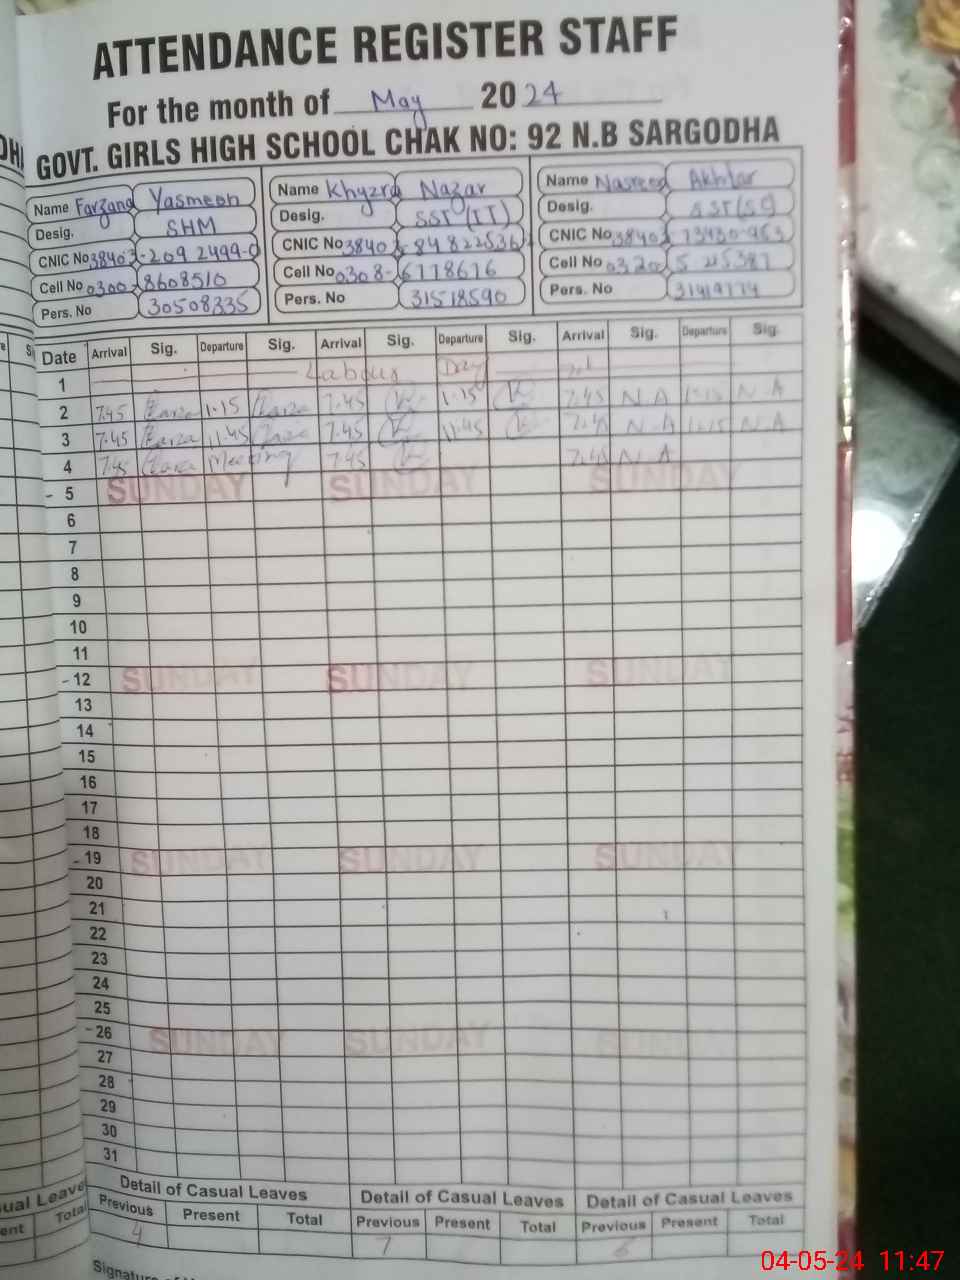 ATTENDANCE REGISTER STAFF
For the month of May 2024
GOVT. GIRLS HIGH SCHOOL CHAK NO: 92 N.B SARGODHA
Name Farzana Yasmeen Name Khyzra Nazar Name Nasreen Akhtar
Desig. SHM Desig. SST (IT) Desig. SST (SC)
CNIC No 38403-209 2499-0 CNIC No CNIC No
Cell No 0300-8608510 Cell No 0308-6778676 Cell No
Pers. No 30508335 Pers. No 31518590 Pers. No
Date Arrival Sig. Departure Sig. Arrival Sig. Departure Sig. Arrival Sig. Departure Sig.
1 Labour Day
2 7.45 1.15 7.45 1.15 7.45 N.A 1.15 N.A
3 7.45 11.45 7.45 11.45 7.45 N.A N.A
4 7.45 Meeting 7.45 7.45 N.A
- 5 SUNDAY SUNDAY SUNDAY
6
7
8
9
10
11
- 12 SUNDAY SUNDAY SUNDAY
13
14
15
16
17
18
- 19 SUNDAY SUNDAY SUNDAY
20
21
22
23
24
25
- 26 SUNDAY SUNDAY SUNDAY
27
28
29
30
31
Detail of Casual Leaves Detail of Casual Leaves Detail of Casual Leaves
Previous Present Total Previous Present Total Previous Present Total
4 7 6
Signature of
04-05-24 11:47